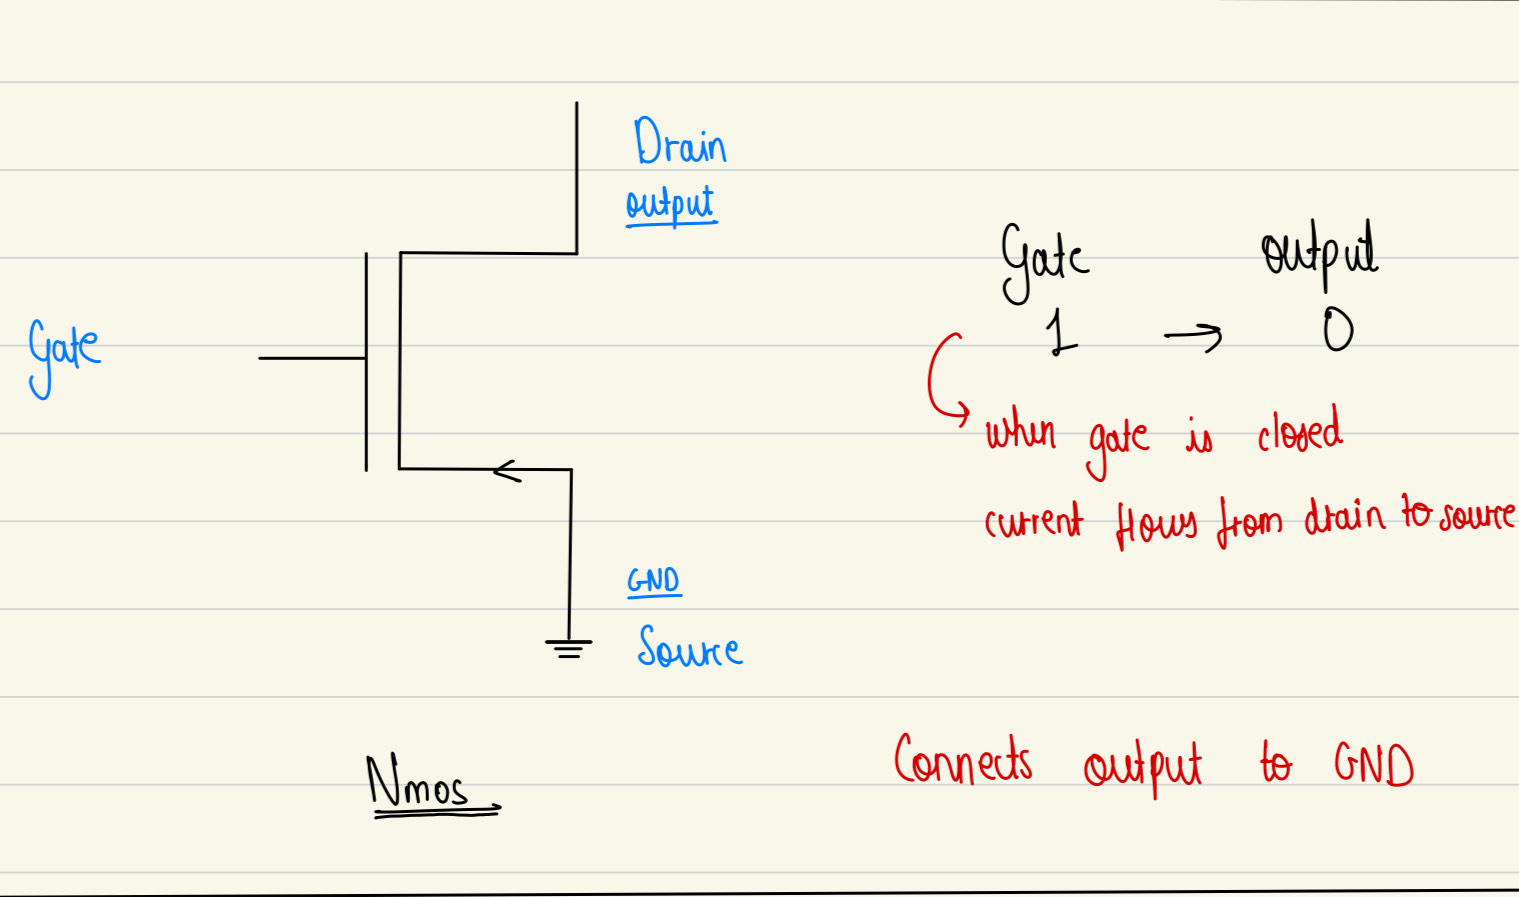 Drain
output
Gate
Gate output
1 → 0
when gate is closed
current flows from drain to source
GND
Source
Nmos
Connects output to GND